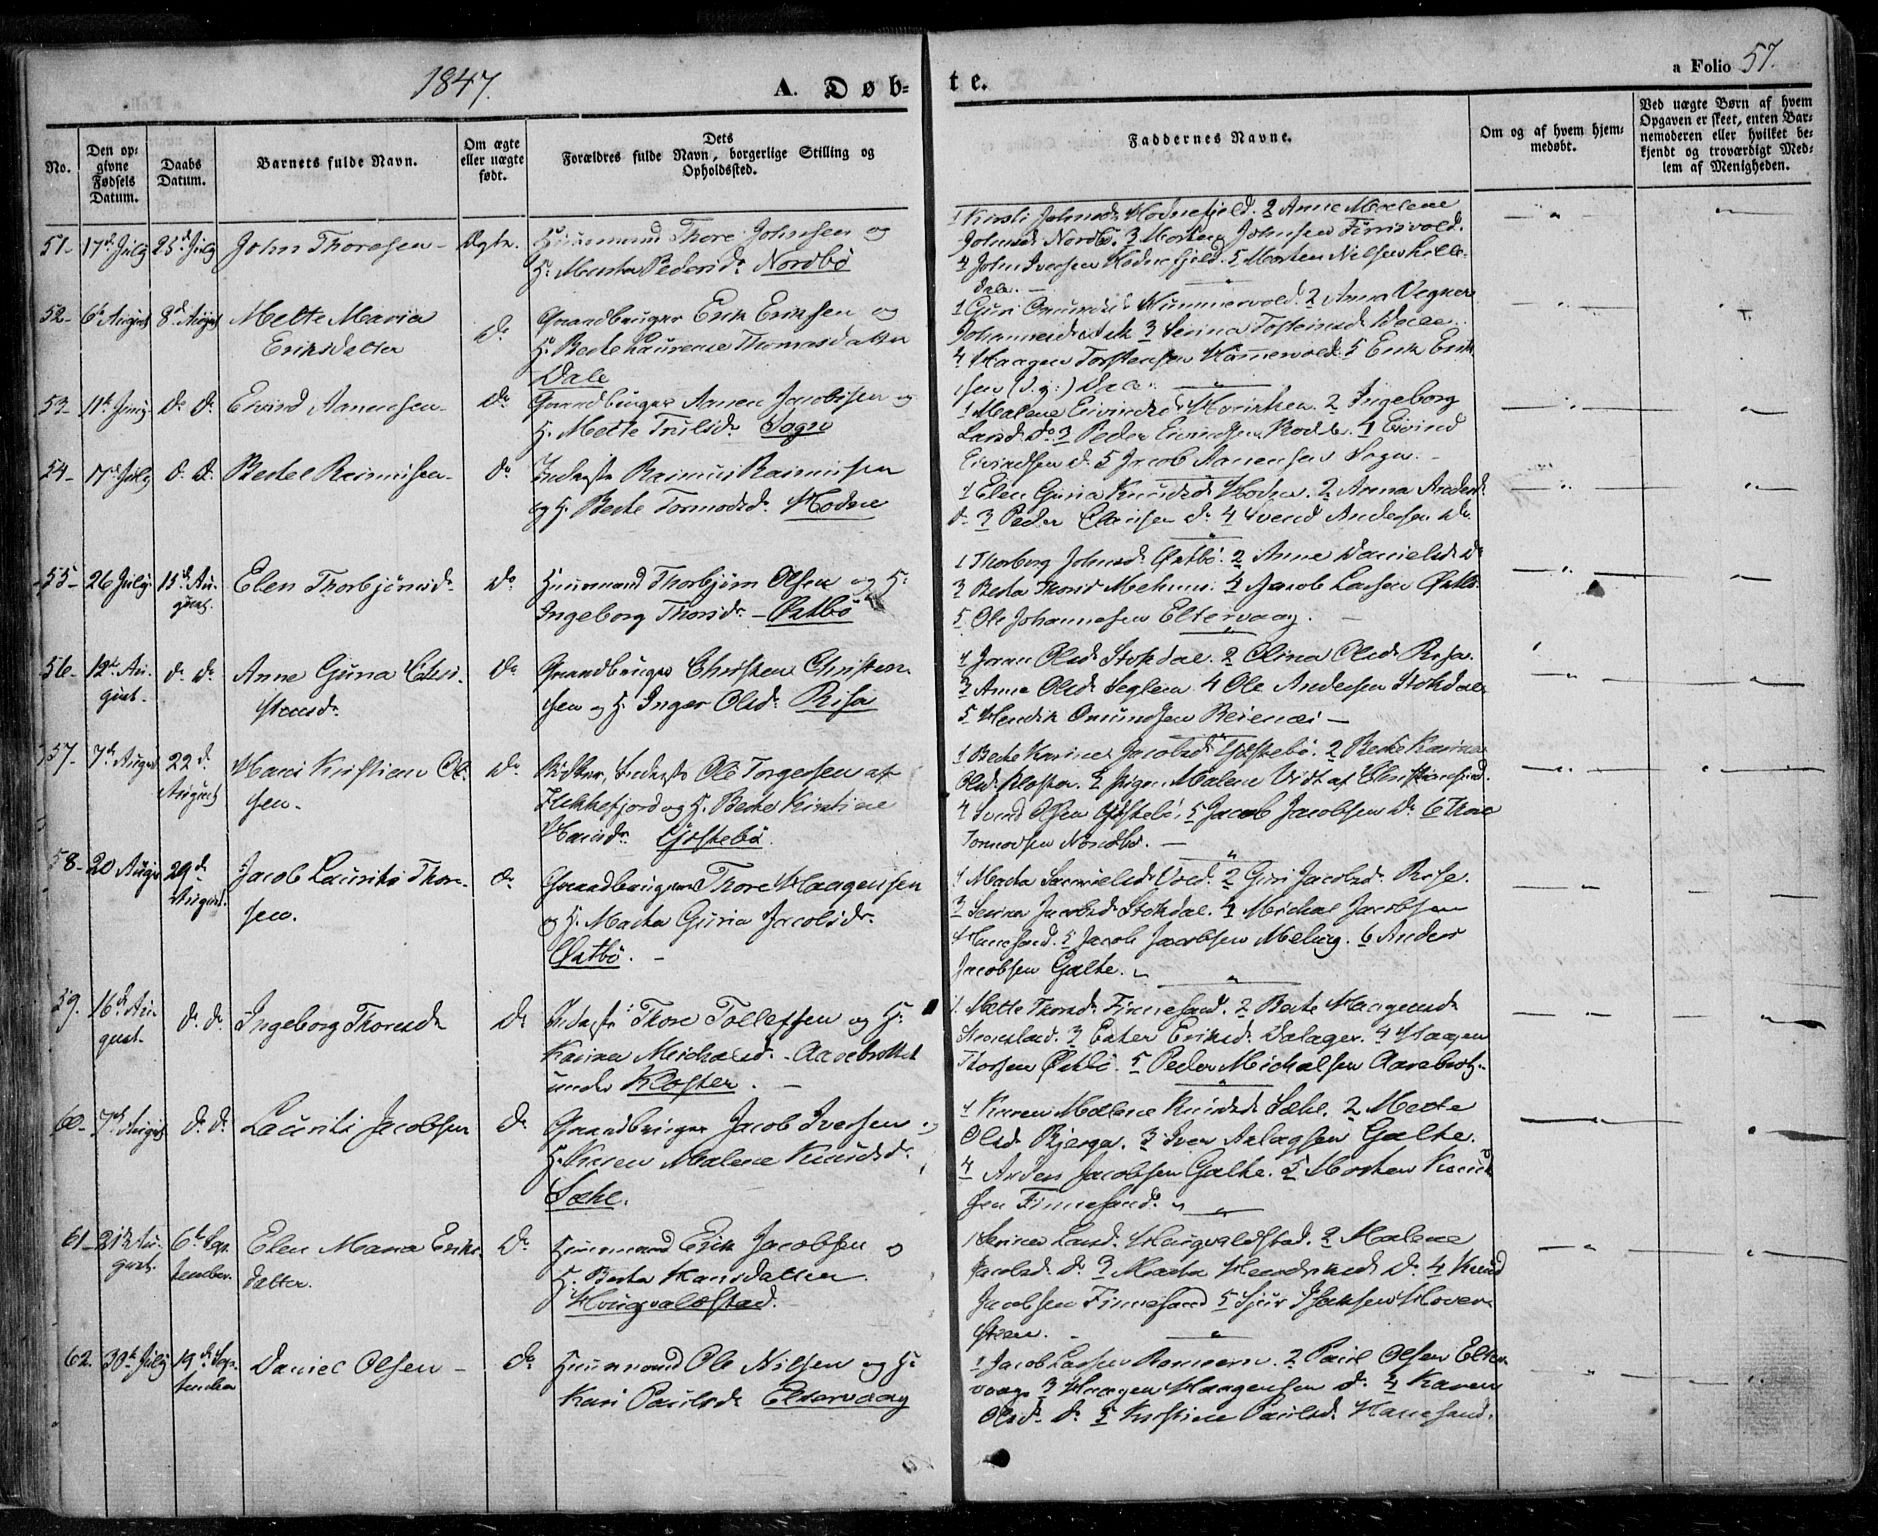 1847.
A. Døb=
te.
a Folio 57.
No.
Den op=
givne
Fødsels
Datum.
Daabs
Datum.
Barnets fulde Navn.
Om ægte
eller uægte
født.
Dets
Forældres fulde Navn, borgerlige Stilling og
Opholdssted.
Faddernes Navne.
Om og af hvem hjem=
medøbt.
Ved uægte Børn af hvem
Opgaven er skeet, enten Bar=
nemoderen eller hvilket be=
kjendt og troværdigt Med=
lem af Menigheden.
51- 17d July 25d July John Thoresen- Ægte. Huusmand Thore Johnsen og
H. Marta Pedersdr. Nordbø
1 Kirsti Johnsd. Hodnefjeld. 2 Anne Malene
Johnsd. Nordbø. 3 Morten Johnsen Finnsvold.
4 John Iversen Hodnefjeld. 5 Morten Nilsen Lille-
dale. -
52- 6d August 8d August Mette Maria
Eriksdatter
Do Gaardbruger Erik Eriksen og
H. Berte Laurense Thomasdatter
Dale
1 Guri Omundsd. 2 Anna
Johannesd. Ask 3 Serina Tosteinsd. Dale.
4 Haagen Torstensen 5 Erik Erik-
sen Dale.
53- 11d Do Do Eivind Aanensen- Do Gaardbruger Aanen Jacobsen og
H. Mette Trulsdr. Sogn
1 Malene Eivindsd. 2 Ingeborg
Larsd. Do 3 Peder Eivindsen 4 Eivind
Eivindsen Do 5 Jacob Aanensen Sogn. -
54- 17d July Do Do Bertel Rasmusen- Do Inderste Rasmus Rasmusen
og H. Berte Tormodsd. Hodne
1 Elen Guria Knudsd. Hodne. 2 Anna Andersd.
Do 3 Peder Do 4 Svend Andersen Do
55- 26 July 15d Au-
gust.
Elen Thorbjørnsd. Do Huusmand Thorbjørn Olsen og H.
Ingeborg Thorsdr. - Østbø
1 Thorborg Johnsd. Østbø. 2 Anne Danielsd. Do
3 Berta Thorsd. 4 Jacob Larsen Østbø
5 Ole Johannesen Eltervaag. -
56- 12d Au-
gust.
Do Do Anne Guria Chri-
stensd.
Do Gaardbruger Christen Christen-
sen og H. Inger Olsdr. Risa
1 Joran Olsd. Stokdal. 2 Olina Olsd. Risa.
3 Anne Olsd. Seglem 4 Ole Andersen Stokdal
5 Hendik Omundsen -
57- 7d August 22d
August
Hans Kristian Ol-
sen.
Do Inderste Ole Torgersen af
Flekkefjord og H. Berte Kirstine
Hansdr. Gjestebø.
1 Berte Karine Jacobsd. Gjestebø. 2 Berte Karine
Olsd. Kloster. 3 pigen Malene Vidt af Christiansand.
4 Svend Olsen Gjestebø. 5 Jacob Jacobsen Do 6 Thore
Tormodsen Nordbø. -
58- 20 August 29d
August.
Jacob Laurits Thore-
sen.
Do Gaardbruger Thore Haagensen
og H. Marta Guria Jacobsdr.
Østbø. -
1 Marta Samuelsd. Vold. 2 Guri Jacobsd. Risa.
3 Serina Jacobsd. Stokdal. 4 Michal Jacobsen
Hanesand. 5 Jacob Jacobsen Meling. 6 Anders
Jacobsen Galte.
59. 16d Au-
gust.
Do Do Ingeborg Thoresd. Do Inderste Thore Tollefsen og H.
Karina Michalsd. - Aarebrottet
under Kloster. -
1. Mette Thorsd. Finnesand. 2 Berte Haagensd.
3 Ester Eriksd. Dalager. 4 Haagen
Thorsen Østbø. 5 Peder Michalsen Aarebrot.
60- 7d August Do Do Laurits Jacobsen Do Gaardbruger Jacob Iversen og
H. Karen Malene Knudsdr.
Sæhl.
1 Karen Malene Knudsd. Sæhl. 2 Mette
Olsd. Bjerga. 3 Iver Aslagsen Galte.
4 Anders Jacobsen Galte. 5 Morten Knud-
sen Finnesand.
61- 21d Au-
gust.
6d Sep-
tember.
Elen Maria Eriks-
datter.
Do Huusmand Erik Jacobsen og
H. Berta Hansdatter.
Hougvaldstad.
1 Serina Larsd. Haugvaldstad. 2 Malene
Jacobsd. Do 3 Marta Hendriksd. Do 4 Knud
Jacobsen Finnesand 5 Sjur Isaksen Hover-
steen. -
62. 30d July 19d Sep-
tember
Daniel Olsen - Do Huusmand Ole Nilsen og H.
Kari Paulsd. Eltervaag
1 Jacob Larsen 2 Paul Olsen Elter-
vaag 3 Haagen Haagensen Do 4 Karen
Olsd. Do 5 Kirstine Paulsd. Hanesand.